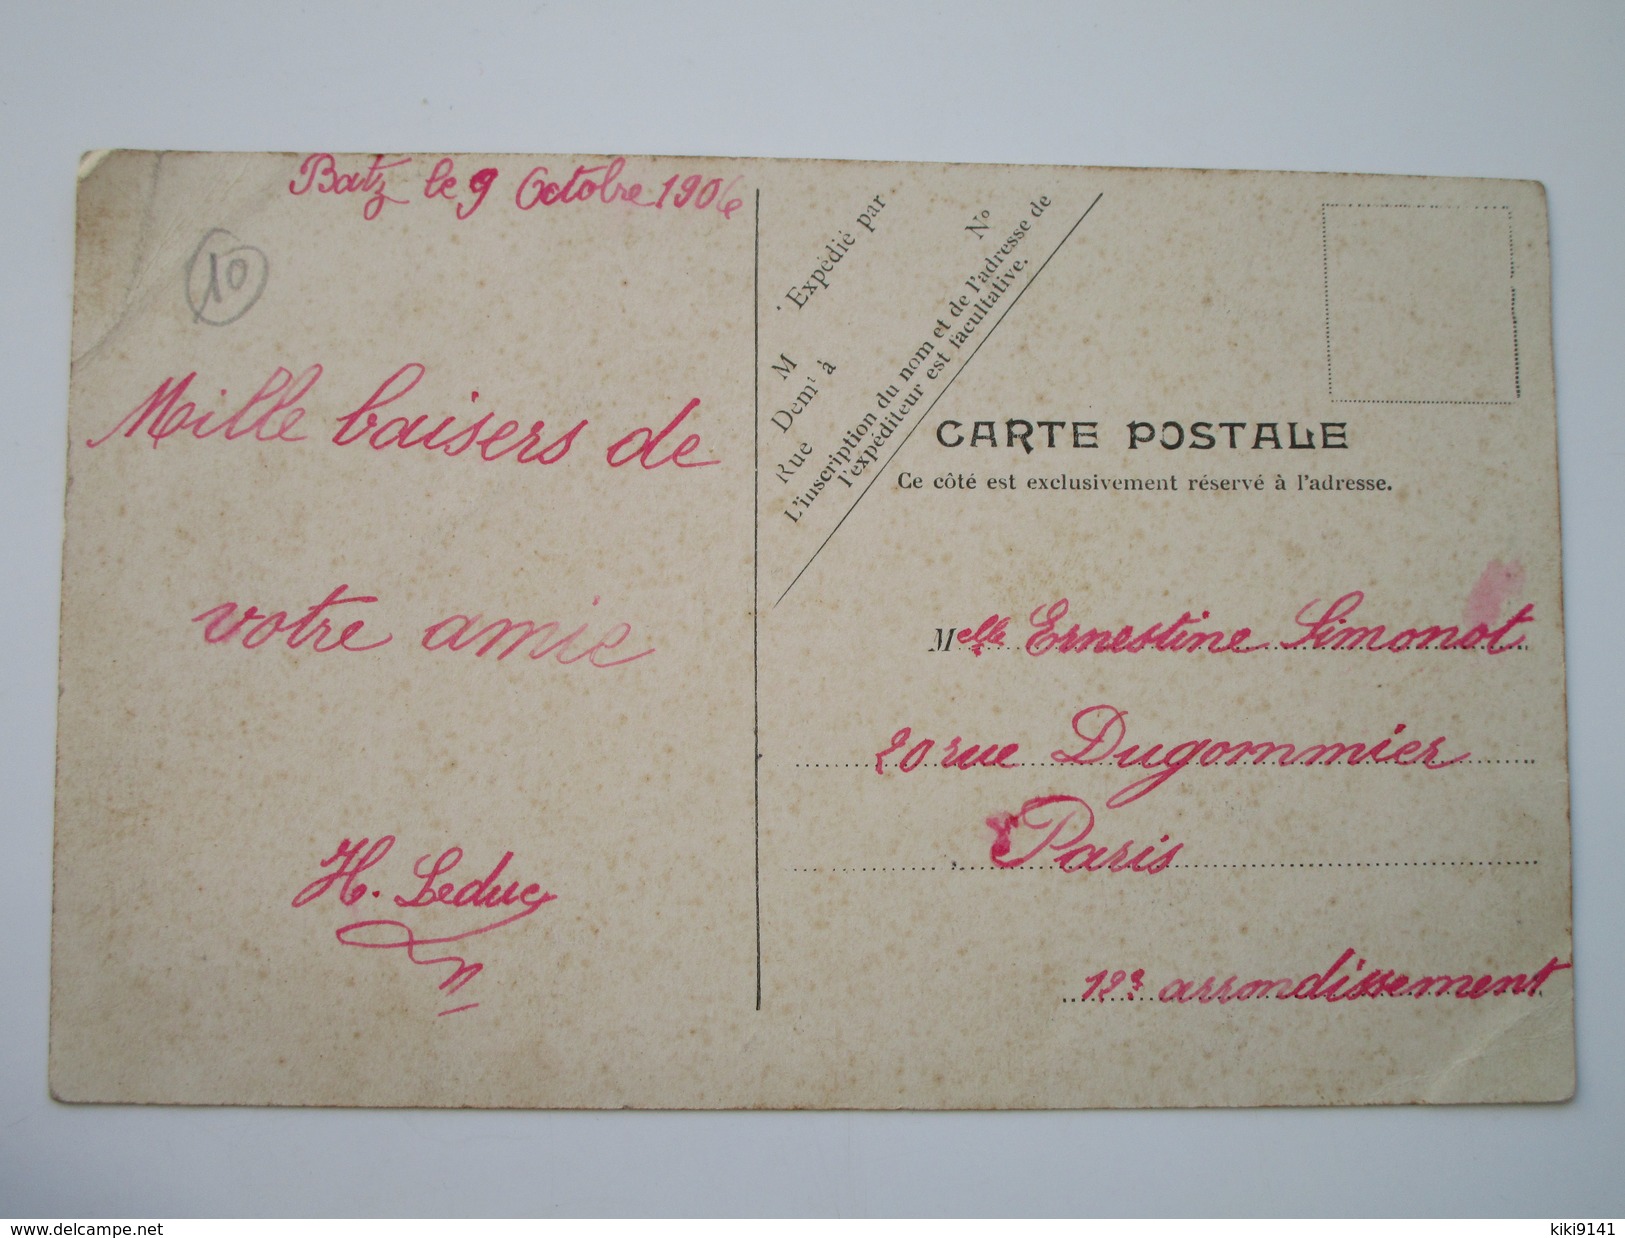 Batz le 9 Octobre 1906
10
Mille baisers de
votre amie
H. Leduc
Expédié par
M
Demt à
Rue
No
L'inscription du nom et de l'adresse de
l'expéditeur est facultative.
CARTE POSTALE
Ce côté est exclusivement réservé à l'adresse.
Melle Ernestine Simonot
20 rue Dugommier
Paris
12e arrondissement
www.delcampe.net
kiki9141